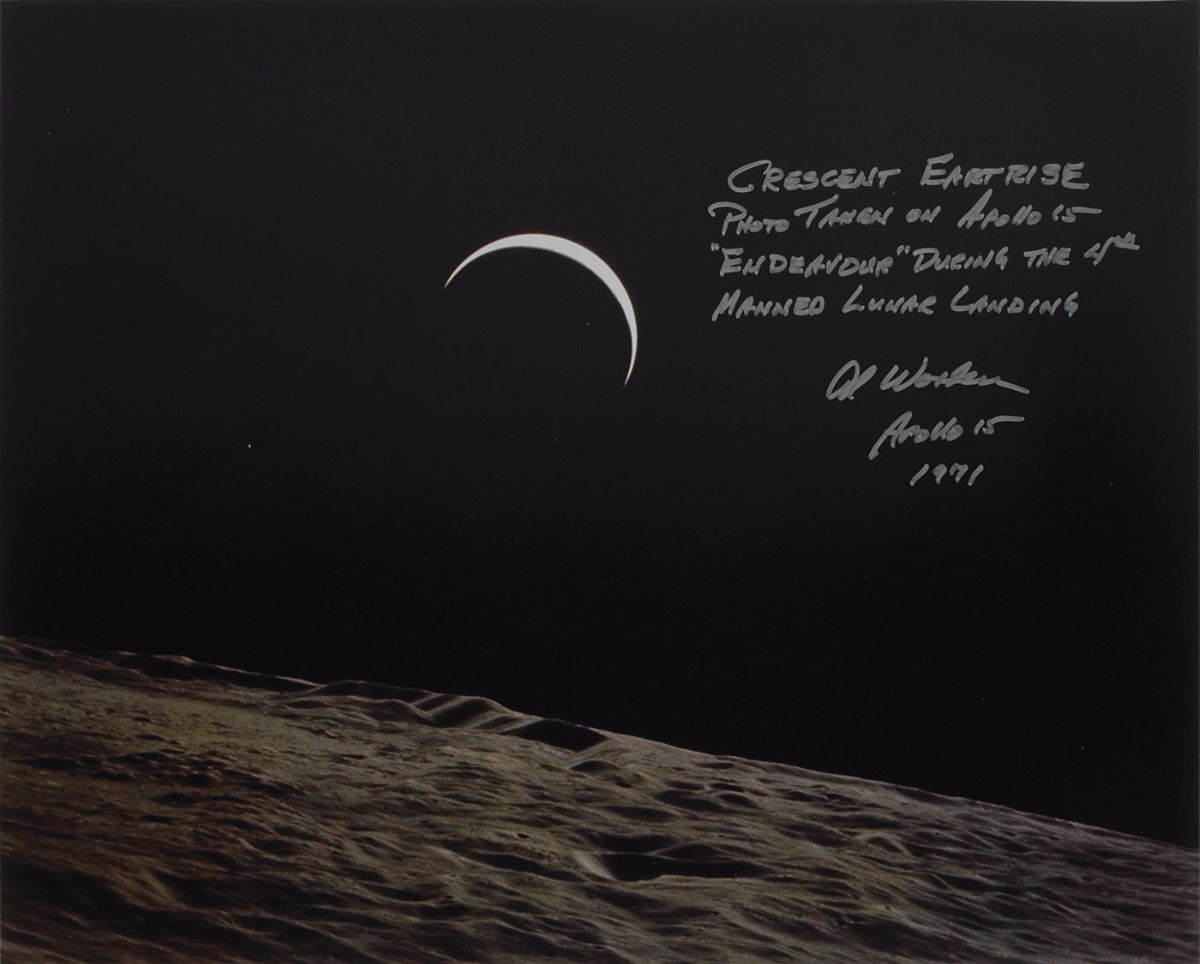 CRESCENT EARTRISE
PHOTO TAKEN ON APOLLO 15
"ENDEAVOUR" DURING THE 4th
MANNED LUNAR LANDING
Al Worden
APOLLO 15
1971